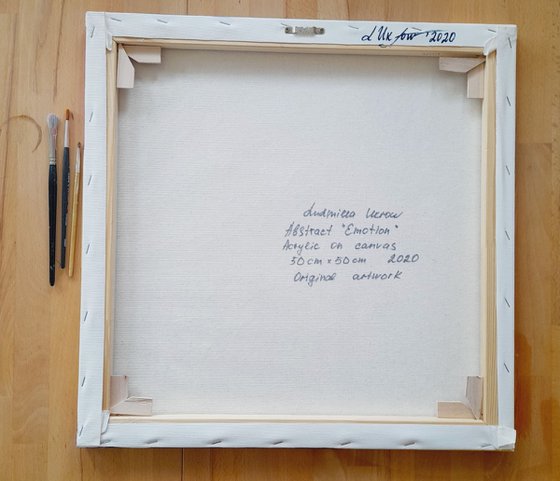 2020
Ludmilla Ukrow
Abstract "Emotion"
Acrylic on canvas
50 cm x 50 cm 2020
Original artwork